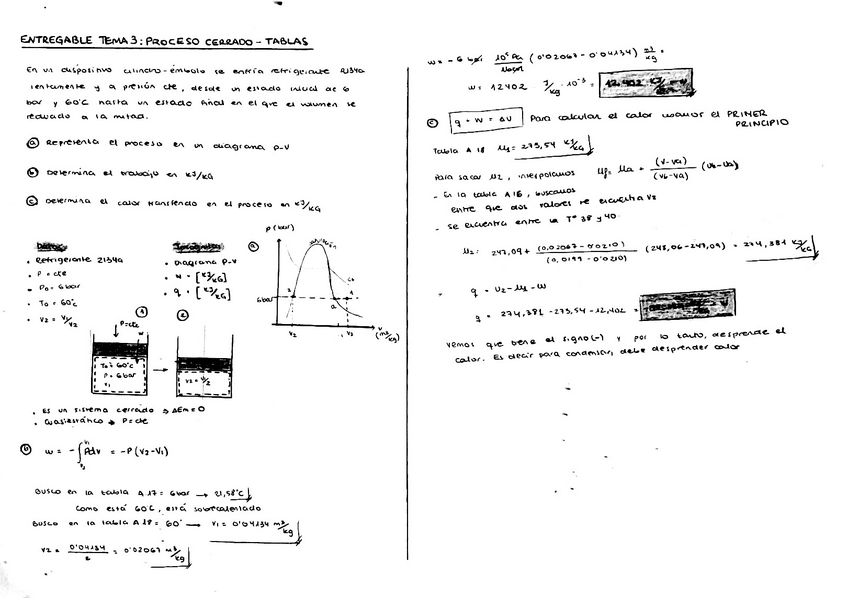 ENTREGABLE TEMA 3: PROCESO CERRADO - TABLAS
En un dispositivo cilindro-émbolo se enfría refrigerante R134a
lentamente y a presión cte, desde un estado inicial de 6
bar y 60°C hasta un estado final en el que el volumen se
reducido a la mitad.
a Representa el proceso en un diagrama p-v
b Determina el trabajo en KJ/KG
c Determina el calor transferido en el proceso en KJ/KG
Datos
• Refrigerante R134a
• P = cte
- P0 = 6 bar
• T0 = 60°C
• V2 = V1/V2
• Diagrama P-V
• w = [KJ/KG]
• q = [KJ/KG]
a
P (bar)
6 bar
2
a
1
V2
V1
v (m3/kg)
1
P=cte
w
T0 = 60°C
P = 6 bar
V1
2
V2 = V1/2
• Es un sistema cerrado → ΔEm = 0
• Cuasiestático → P=cte
b w = - ∫ Pdv = -P (V2-V1)
Busco en la tabla A17 = 6 bar → 21,58°C
Como está 60C, está sobrecalentado
Busco en la tabla A18 = 60° → V1 = 0'04134 m3/kg
V2 = 0'04134 / 2 = 0'02067 m3/kg
w = - 6 bar 10^5 Pa / 1 bar (0'02067 - 0'04134) m3/kg =
w = 12402 J/kg · 10^-3 = 12,402 KJ/KG
c q + w = ΔU Para calcular el calor usamos el PRIMER
PRINCIPIO
Tabla A 18 U1 = 273,54 KJ/KG
Para sacar U2, interpolamos Uf = Ua + (V-Va) / (Vb-Va) (Ub-Ua)
- En la tabla A16, buscamos
entre que dos valores se encuentra V2
- Se encuentra entre la Tª 38 y 40
U2 = 247,09 + (0,02067 - 0'0210) / (0,0199 - 0'0210) (248,06-247,09) = 274,381 KJ/KG
q = U2 - U1 - w
q = 274,381 - 273,54 - 12,402 =
Vemos que tiene el signo (-) y por lo tanto, desprende el
calor. Es decir para condensar, debe desprender calor